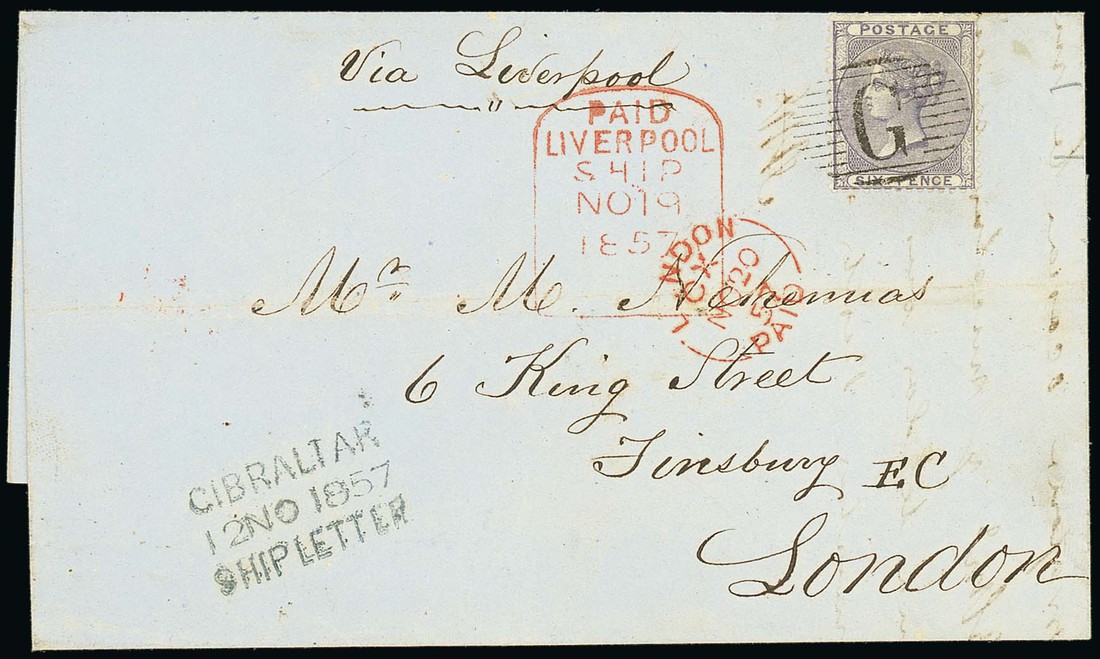 POSTAGE
G
SIX PENCE
Via Liverpool
PAID
LIVERPOOL
SHIP
NO 19
1857
LONDON
CX
20
57
PAID
Mr. M. Nehemias
6 King Street
Finsbury EC
London
GIBRALTAR
12 NO 1857
SHIP LETTER